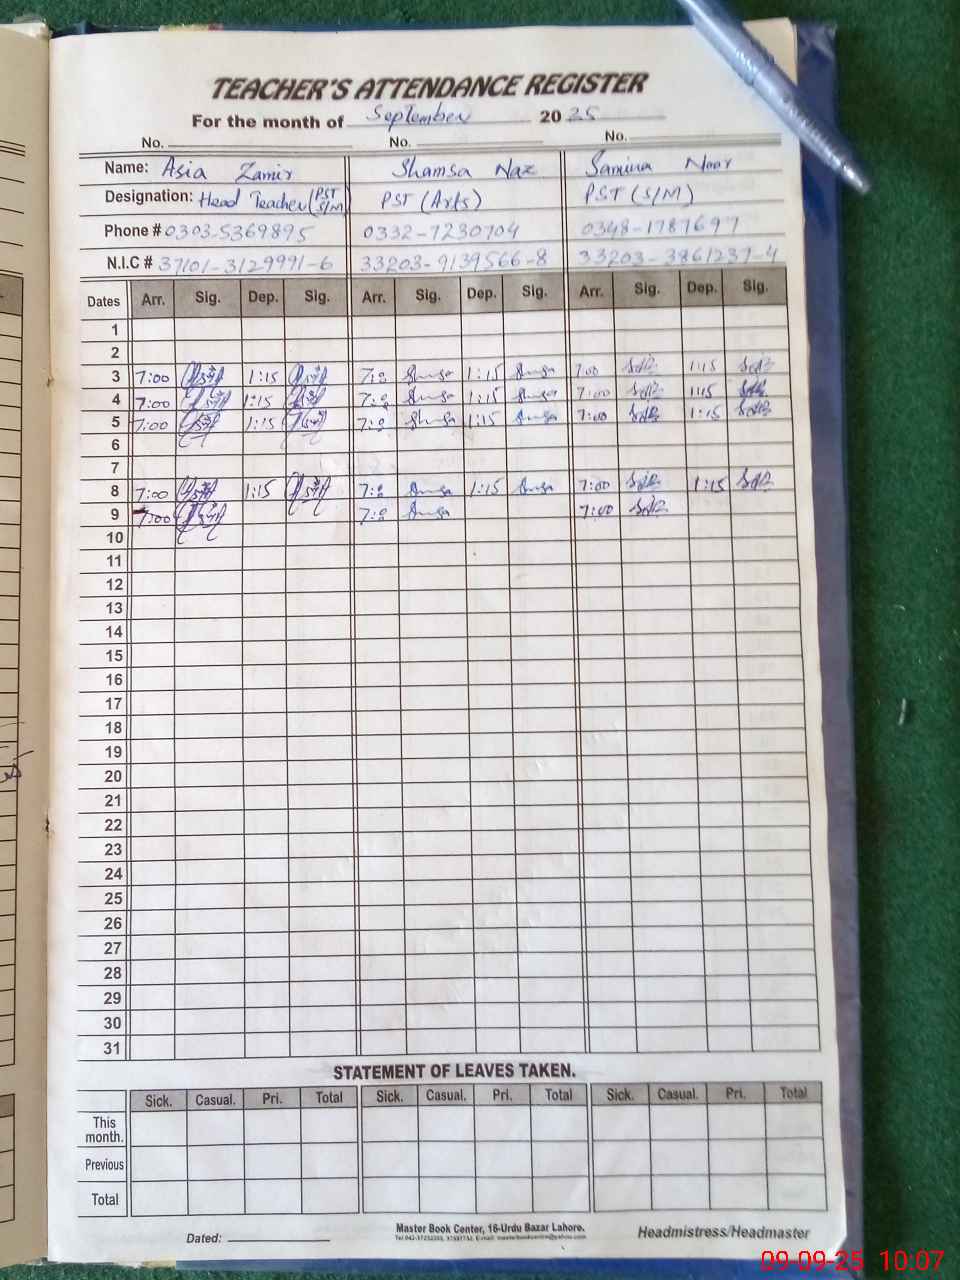 TEACHER'S ATTENDANCE REGISTER
For the month of September 2025
No. No. No.
Name: Asia Zamir Shamsa Naz Samina Noor
Designation: Head Teacher (PST S/M) PST (Arts) PST (S/M)
Phone # 0303-5369895 0332-7230704 0348-1787697
N.I.C # 37101-3129991-6 33203-9139566-8 33203-3861237-4
Dates Arr. Sig. Dep. Sig. Arr. Sig. Dep. Sig. Arr. Sig. Dep. Sig.
1
2
3 7:00 1:15 7:0 1:15 7:00 1:15
4 7:00 1:15 7:0 1:15 7:00 1:15
5 7:00 1:15 7:0 1:15 7:00 1:15
6
7
8 7:00 1:15 7:0 1:15 7:00 1:15
9 7:00 7:0 7:00
10
11
12
13
14
15
16
17
18
19
20
21
22
23
24
25
26
27
28
29
30
31
STATEMENT OF LEAVES TAKEN.
Sick. Casual. Pri. Total Sick. Casual. Pri. Total Sick. Casual. Pri. Total
This month.
Previous
Total
Dated: Master Book Center, 16-Urdu Bazar Lahore. Headmistress/Headmaster
09-09-25 10:07